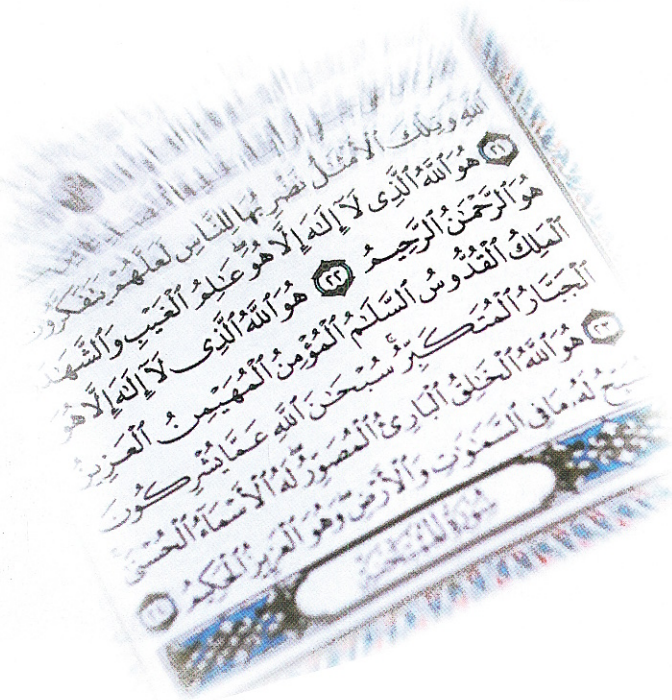 ٱللَّهِ وَتِلْكَ ٱلْأَمْثَٰلُ نَضْرِبُهَا لِلنَّاسِ لَعَلَّهُمْ يَتَفَكَّرُونَ
٢١ هُوَ ٱللَّهُ ٱلَّذِى لَآ إِلَٰهَ إِلَّا هُوَ ۖ عَٰلِمُ ٱلْغَيْبِ وَٱلشَّهَٰدَ
هُوَ ٱلرَّحْمَٰنُ ٱلرَّحِيمُ ٢٢ هُوَ ٱللَّهُ ٱلَّذِى لَآ إِلَٰهَ إِلَّا هُوَ
ٱلْمَلِكُ ٱلْقُدُّوسُ ٱلسَّلَٰمُ ٱلْمُؤْمِنُ ٱلْمُهَيْمِنُ ٱلْعَزِيزُ
ٱلْجَبَّارُ ٱلْمُتَكَبِّرُ ۚ سُبْحَٰنَ ٱللَّهِ عَمَّا يُشْرِكُونَ
٢٣ هُوَ ٱللَّهُ ٱلْخَٰلِقُ ٱلْبَارِئُ ٱلْمُصَوِّرُ ۖ لَهُ ٱلْأَسْمَآءُ ٱلْحُسْنَىٰ
يُسَبِّحُ لَهُۥ مَا فِى ٱلسَّمَٰوَٰتِ وَٱلْأَرْضِ ۖ وَهُوَ ٱلْعَزِيزُ ٱلْحَكِيمُ ٢٤
سُورَةُ ٱلْمُمْتَحَنَةِ